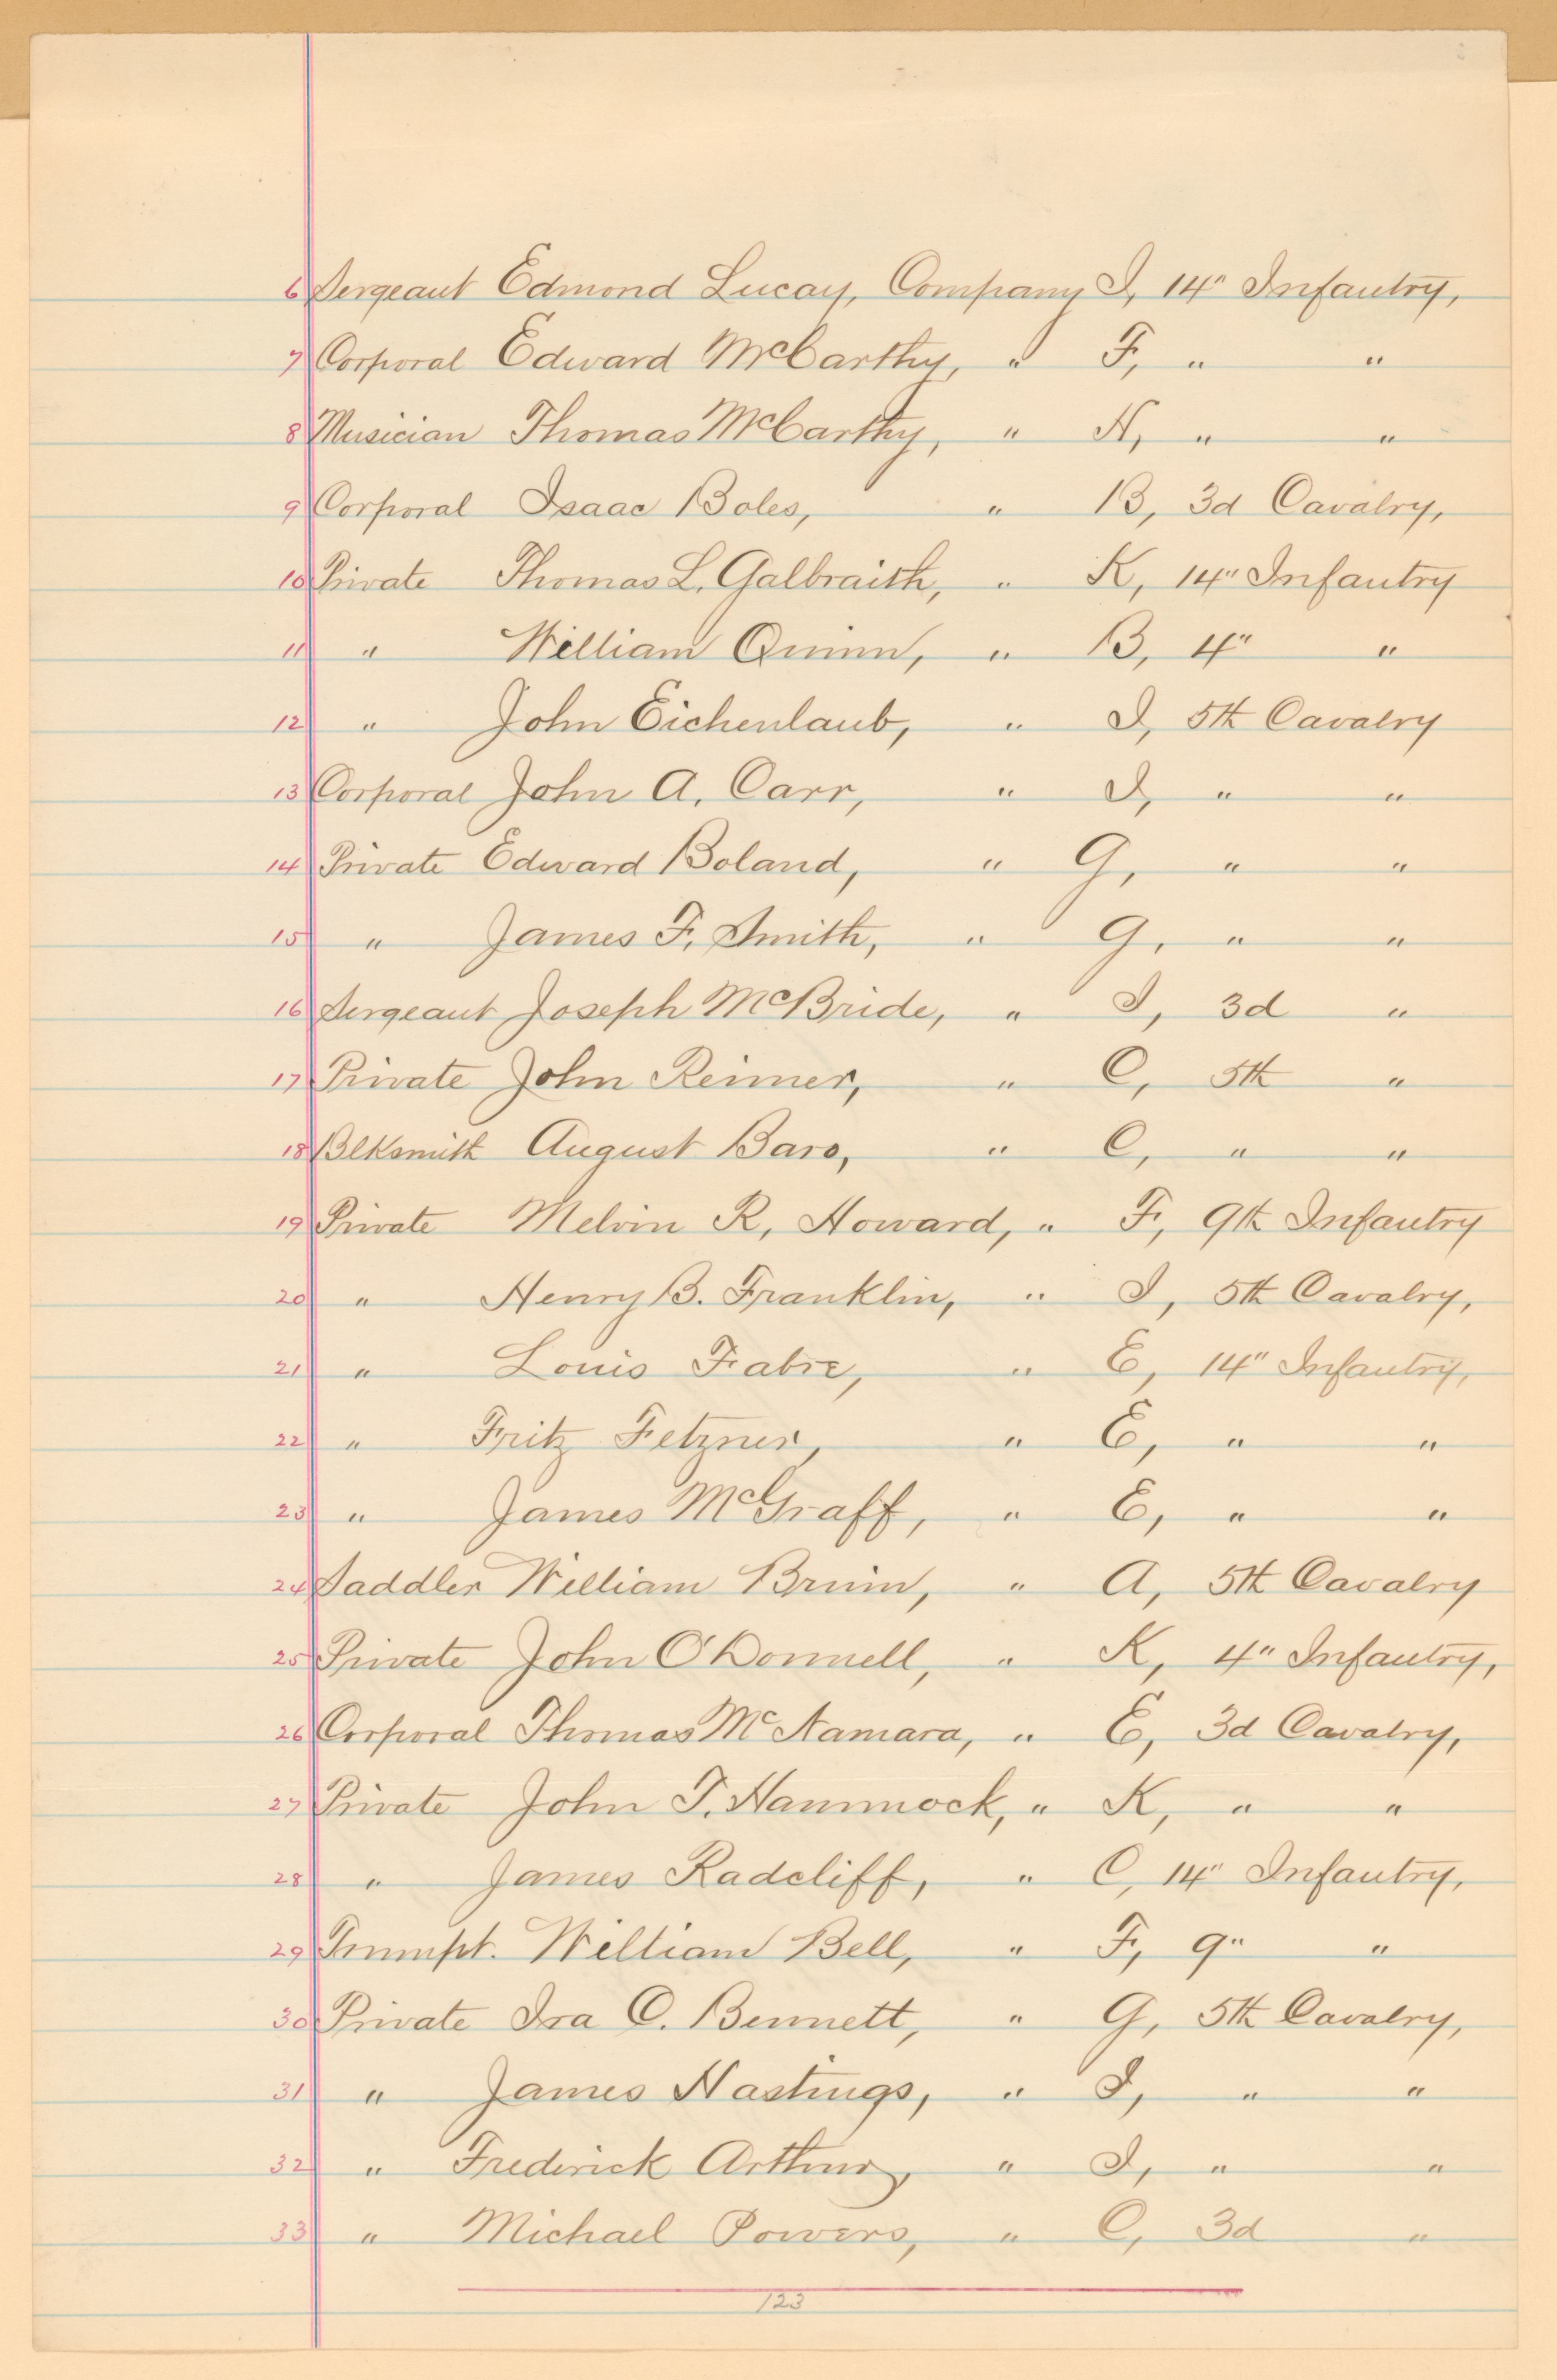 6 Sergeant Edmond Lucay, Company I, 14" Infantry,
7 Corporal Edward McCarthy, " F, " "
8 Musician Thomas McCarthy, " H, " "
9 Corporal Isaac Boles, " B, 3d Cavalry,
10 Private Thomas L. Galbraith, " K, 14" Infantry
11 " William Quinn, " B, 4" "
12 " John Eichenlaub, " I, 5th Cavalry
13 Corporal John A. Carr, " I, " "
14 Private Edward Boland, " G, " "
15 " James F. Smith, " G, " "
16 Sergeant Joseph McBride, " I, 3d "
17 Private John Reimer, " C, 5th "
18 Blksmith August Baro, " C, " "
19 Private Melvin R, Howard, " F, 9th Infantry
20 " Henry B. Franklin, " I, 5th Cavalry,
21 " Louis Fabre, " E, 14" Infantry,
22 " Fritz Fetzner, " E, " "
23 " James McGraff, " E, " "
24 Saddler William Brinn, " A, 5th Cavalry
25 Private John O'Donnell, " K, 4" Infantry,
26 Corporal Thomas McNamara, " E, 3d Cavalry,
27 Private John T. Hammock, " K, " "
28 " James Radcliff, " C, 14" Infantry,
29 Trumpt. William Bell, " F, 9" "
30 Private Ira C. Bennett, " G, 5th Cavalry,
31 " James Hastings, " I, " "
32 " Frederick Arthur, " I, " "
33 " Michael Powers, " C, 3d "
123